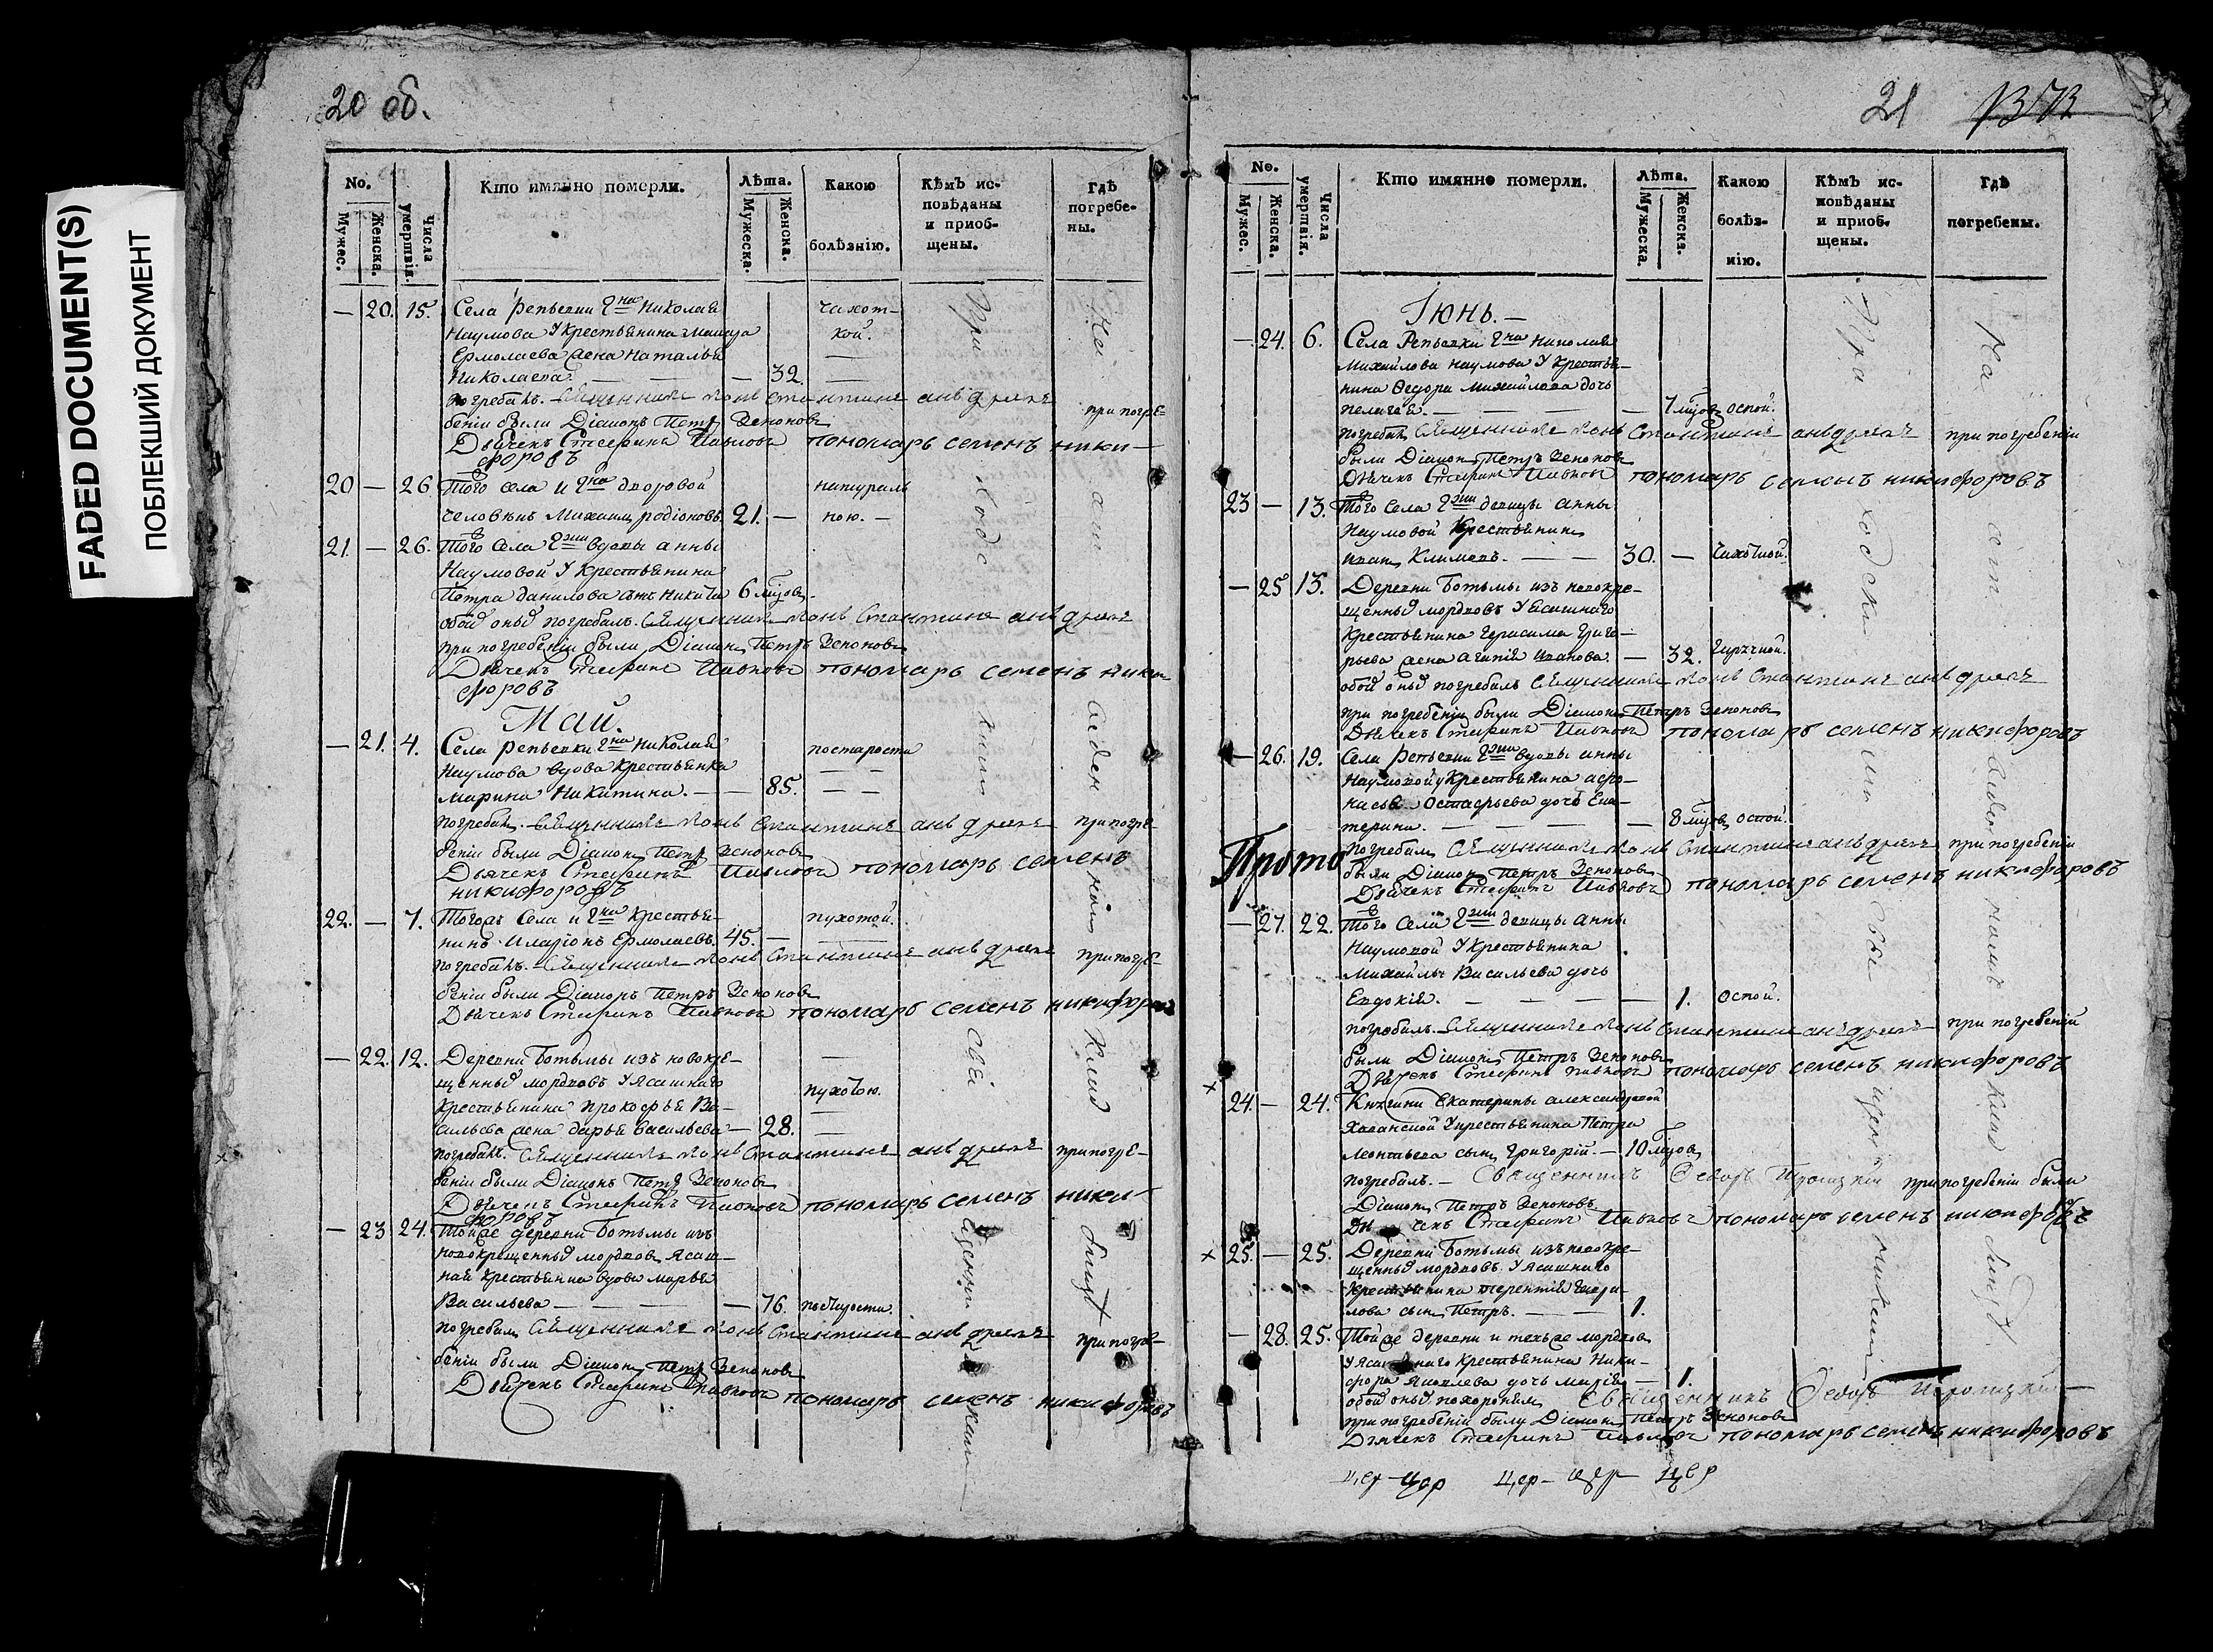 FADED DOCUMENT(S)
ПОБЛЕКШИЙ ДОКУМЕНТ
20 об.
No.
Мужес.
Женска.
Числа умертвія.
Кто имянно померли.
Лѣта.
Мужеска.
Женска.
Какою болѣзнію.
Кѣмъ ис-
повѣданы
и приоб-
щены.
Гдѣ
погребе-
ны.
— 20. 15. Села Репьевки г<sup>на</sup> Николая чахот-
Наумова у крестьянина кой.
Ермолаева жена Наталья
Николаева. — — — 32. —
погребалъ. Священникъ Константинъ при погре-
беніи были Діаконъ Петръ Зеноновъ
Дьячекъ Стефанъ Павловъ пономарь семенъ ники-
форовъ
20 — 26 Того села и г<sup>на</sup> дворовой натураль
человѣкъ Михаилъ родіоновъ. 21. — ною. —
21. — 26. Того села г<sup>жи</sup> вдовы анны
Наумовой у крестьянина
Петра данилова сынъ Никита 6 мѣсяцовъ.
обоихъ оныхъ погребалъ. Священникъ Константинъ
при погребеніи были Діаконъ Петръ Зеноновъ
Дьячекъ Стефанъ Павловъ пономарь семенъ ники
форовъ
Май.
— 21. 4. Села репьевки г<sup>на</sup> николая по старости
Наумова вдова крестьянка — —
марина Никитина. — — 85. — —
погребалъ. Священникъ Константинъ при погре-
беніи были Діаконъ Петръ Зеноновъ
Дьячекъ Стефанъ Павловъ пономарь семенъ
никифоровъ
22. — 7. Тогожъ Села и г<sup>на</sup> крестья- пухотой.
нинъ Иларіонъ Ермолаевъ. 45. —
погребалъ. Священникъ Константинъ при погре-
беніи были Діаконъ Петръ Зеноновъ
Дьячекъ Стефанъ Павловъ пономарь семенъ никифоровъ
— 22. 12. Деревни Ботьмы изъ новокре- —
щенныхъ мордвовъ у ясашнаго пухотою.
крестьянина прокофья Ва- —
сильева жена дарья васильева — 28. —
погребалъ. Священникъ Константинъ при погре-
беніи были Діаконъ Петръ Зеноновъ
Дьячекъ Стефанъ Павловъ пономарь семенъ ники-
форовъ
— 23 24. Тойже деревни Ботьмы изъ
новокрещенныхъ мордвовъ ясаш-
ная крестьянка вдова марья
Васильева — — — 76. по старости.
погребалъ Священникъ Константинъ при погре-
беніи были Діаконъ Петръ Зеноновъ
Дьячекъ Стефанъ Павловъ пономарь семенъ никифоровъ
При ходски ми свя щенни ками
На от веден номъ клад бищѣ
21
1373
No.
Мужес.
Женска.
Числа умертвія.
Кто имянно померли.
Лѣта.
Мужеска.
Женска.
Какою
болѣз-
нію.
Кѣмъ ис-
повѣданы
и приоб-
щены.
Гдѣ
погребены.
Іюнь. —
— 24. 6. Села Репьевки г<sup>на</sup> Николая
Михайлова наумова у крестья-
нина Федора михайлова дочь
пелагея. — — — — 7 мѣсяцовъ оспой.
погребалъ Священникъ Константинъ при погребеніи
были Діаконъ Петръ Зеноновъ
Дьячекъ Стефанъ Павловъ пономарь семенъ никифоровъ
23 — 13. Того Села г<sup>жи</sup> девицы анны
Наумовой Крестьянинъ
иванъ Климовъ. — — 30. — чахоткой.
— 25 13. Деревни Ботьмы изъ новокре-
щенныхъ мордвовъ у ясашнаго
крестьянина герасима григо-
рьева жена агапія иванова. — 32. горячкой.
обоихъ оныхъ погребалъ Священникъ Константинъ
при погребеніи были Діаконъ Петръ Зеноновъ
Дьячекъ Стефанъ Павловъ пономарь семенъ никифоровъ
— 26. 19. Села Репьевки г<sup>жи</sup> вдовы анны
Наумовой у крестьянина афо-
насья Остафьева дочь Ека-
терина. — — — — 8 мѣсяцовъ оспой.
Прото
погребалъ Священникъ Константинъ при погребеніи
были Діаконъ Петръ Зеноновъ
Дьячекъ Стефанъ Павловъ пономарь семенъ никифоровъ
— 27. 22. Того Села г<sup>жи</sup> девицы Анны
Наумовой у крестьянина
Михайлы Васильева дочь
Евдокія. — — — — 1. оспой.
погребалъ. Священникъ Константинъ при погребеній
были Діаконъ Петръ Зеноновъ
Дьячекъ Стефанъ павловъ пономарь семенъ никифоровъ
× 24. — 24. Княгини Екатерины александровой
Хованской у крестьянина Петра
леонтьева сынъ Григорій. — 10 мѣсяцовъ
погребалъ. — Священникъ Федоръ Троицкій при погребеніи были
Діаконъ Петръ Зеноновъ
Дьячекъ Стефанъ Павловъ пономарь семенъ никифоровъ
× 25. — 25. Деревни Ботьмы изъ новокре-
щенныхъ мордвовъ у ясашнаго
крестьянина терентія
лова сынъ Петръ. — — 1.
— 28. 25. Тойже деревни и техъже мордвовъ
у ясашнаго крестьянина Ники-
фора яковлева дочь марія — 1.
обоихъ оныхъ похоронилъ Священникъ Федоръ Троицкій —
при погребеніи были Діаконъ Петръ Зеноновъ
Дьячекъ Стефанъ Павловъ пономарь семенъ никифоровъ
При ходски ми свя щен никами
На от веден номъ клад бищѣ.
цер — цер цер — цер цер